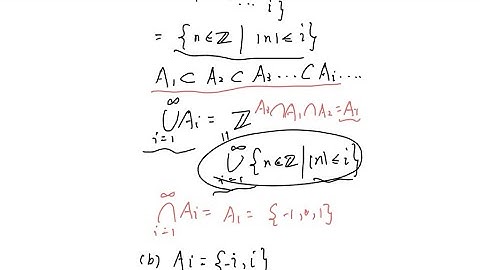 ... i}
= {n∈ℤ | |n|≤i}
A₁⊂ A₂⊂ A₃...⊂Aᵢ....
∞⋃i=1 Aᵢ = ℤ A₃∩A₁∩A₂=A₁
=
∞⋃i=1 {n∈ℤ | |n|≤i}
∞⋂i=1 Aᵢ = A₁ = {-1,0,1}
(b) Aᵢ = {-i,i}